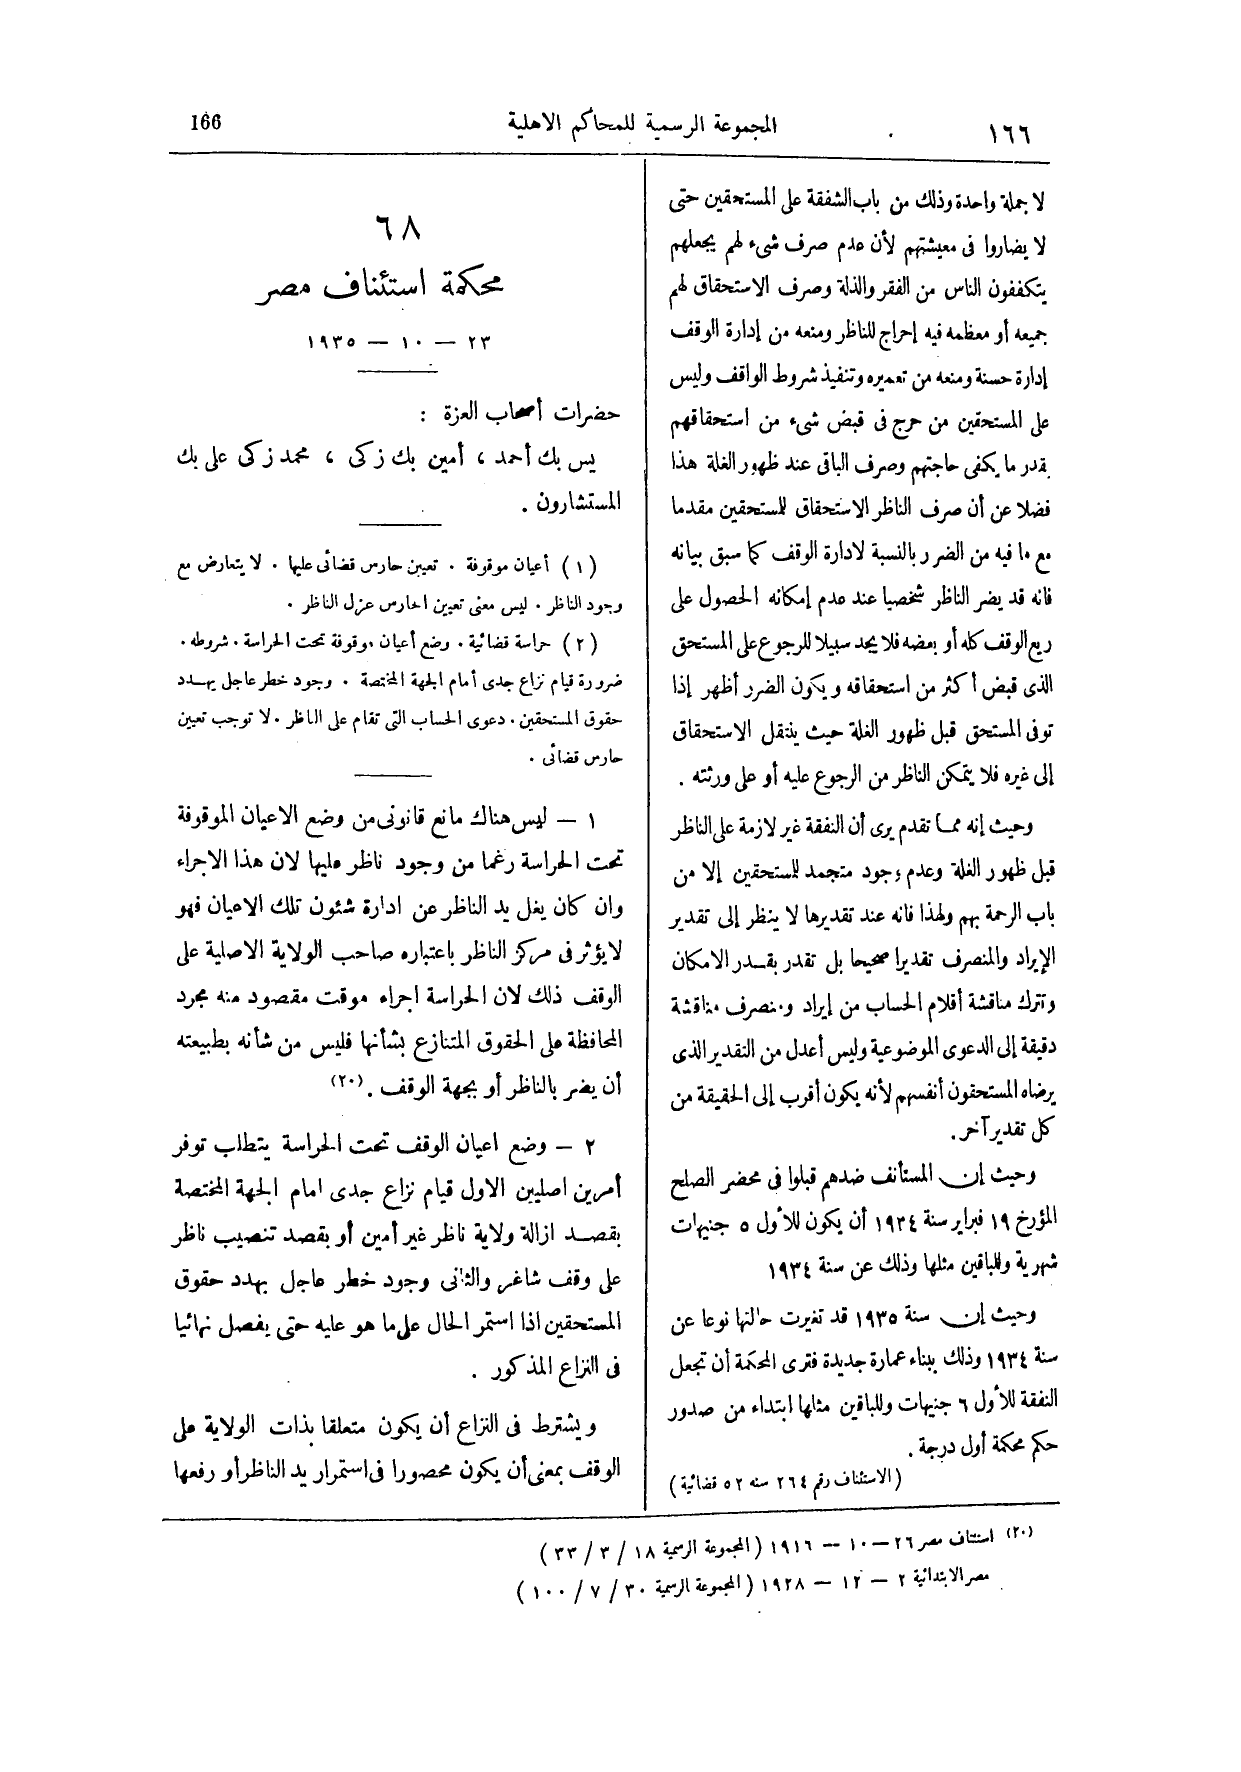 ١٦٦
المجموعة الرسمية للمحاكم الاهلية
166
لا جملة واحدة وذلك من باب الشفقة على المستحقين حتى
لا يضاروا فى معيشتهم لأن عدم صرف شىء لهم يجعلهم
يتكففون الناس من الفقر والذلة وصرف الاستحقاق لهم
جميعه أو معظمه فيه إحراج للناظر ومنعه من إدارة الوقف
إدارة حسنة ومنعه من تعميره وتنفيذ شروط الواقف وليس
على المستحقين من حرج فى قبض شىء من استحقاقهم
بقدر ما يكفى حاجتهم وصرف الباقى عند ظهور الغلة هذا
فضلا عن أن صرف الناظر الاستحقاق للمستحقين مقدما
مع ما فيه من الضرر بالنسبة لادارة الوقف كما سبق بيانه
فانه قد يضر الناظر شخصيا عند عدم إمكانه الحصول على
ريع الوقف كله أو بعضه فلا يجد سبيلا للرجوع على المستحق
الذى قبض أكثر من استحقاقه ويكون الضرر أظهر إذا
توفى المستحق قبل ظهور الغلة حيث ينتقل الاستحقاق
إلى غيره فلا يتمكن الناظر من الرجوع عليه أو على ورثته .
وحيث إنه مما تقدم يرى أن النفقة غير لازمة على الناظر
قبل ظهور الغلة وعدم وجود متجمد للمستحقين إلا من
باب الرحمة بهم ولهذا فانه عند تقديرها لا ينظر إلى تقدير
الإيراد والمنصرف تقديرا صحيحا بل تقدر بقدر الامكان
وتترك مناقشة أقلام الحساب من إيراد ومنصرف مناقشة
دقيقة إلى الدعوى الموضوعية وليس أعدل من التقدير الذى
يرضاه المستحقون أنفسهم لأنه يكون أقرب إلى الحقيقة من
كل تقدير آخر .
وحيث إن المستأنف ضدهم قبلوا فى محضر الصلح
المؤرخ ١٩ فبراير سنة ١٩٣٤ أن يكون للأول ٥ جنيهات
شهرية وللباقين مثلها وذلك عن سنة ١٩٣٤
وحيث إن سنة ١٩٣٥ قد تغيرت حالتها نوعا عن
سنة ١٩٣٤ وذلك ببناء عمارة جديدة فترى المحكمة أن تجعل
النفقة للأول ٦ جنيهات وللباقين مثلها ابتداء من صدور
حكم محكمة أول درجة .
(الاستئناف رقم ٢٦٤ سنه ٥٢ قضائية)
٦٨
محكمة استئناف مصر
٢٣ — ١٠ — ١٩٣٥
حضرات أصحاب العزة :
يس بك أحمد ، أمين بك زكى ، محمد زكى على بك
المستشارون .
(١) أعيان موقوفة . تعيين حارس قضائى عليها . لا يتعارض مع
وجود الناظر . ليس معنى تعيين الحارس عزل الناظر .
(٢) حراسة قضائية . وضع أعيان موقوفة تحت الحراسة . شروطه .
ضرورة قيام نزاع جدى أمام الجهة المختصة . وجود خطر عاجل يهدد
حقوق المستحقين . دعوى الحساب التى تقام على الناظر . لا توجب تعيين
حارس قضائى .
١ — ليس هناك مانع قانونى من وضع الاعيان الموقوفة
تحت الحراسة رغما من وجود ناظر عليها لان هذا الاجراء
وان كان يغل يد الناظر عن ادارة شئون تلك الاعيان فهو
لا يؤثر فى مركز الناظر باعتباره صاحب الولاية الاصلية على
الوقف ذلك لان الحراسة اجراء موقت مقصود منه مجرد
المحافظة على الحقوق المتنازع بشأنها فليس من شأنه بطبيعته
أن يضر بالناظر أو بجهة الوقف . (٢٠)
٢ — وضع اعيان الوقف تحت الحراسة يتطلب توفر
أمرين اصليين الاول قيام نزاع جدى امام الجهة المختصة
بقصد ازالة ولاية ناظر غير أمين أو بقصد تنصيب ناظر
على وقف شاغر والثانى وجود خطر عاجل يهدد حقوق
المستحقين اذا استمر الحال على ما هو عليه حتى يفصل نهائيا
فى النزاع المذكور .
ويشترط فى النزاع أن يكون متعلقا بذات الولاية على
الوقف بمعنى أن يكون محصورا فى استمرار يد الناظر أو رفعها
(٢٠) استئناف مصر ٢٦ — ١٠ — ١٩١٦ (المجموعة الرسمية ١٨ / ٣ / ٣٣)
مصر الابتدائية ٢ — ١٢ — ١٩٢٨ (المجموعة الرسمية ٣٠ / ٧ / ١٠٠)